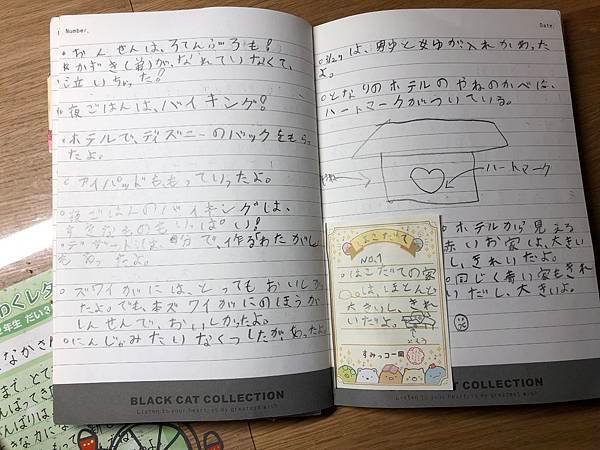 Number.
○おんせんは、ろてんぶろも!
かずき(弟)が、なれていなくて、
泣いちゃった!
夜ごはんは、バイキング!
・ホテルで、ディズニーのバックをもらっ
たよ。
アイパッドももっていったよ。
夜ごはんのバイキングは、
すきなものもいっぱい!
・デザートは、自分で、作るわたがし
もあったよ。
ズワイがには、とってもおいしかっ
たよ。でも、本ズワイがにのほうが
しんせんで、おいしかったよ。
○にんじゃみたいなくつしたがあったよ。
BLACK CAT COLLECTION
Listen to your heart, is my greatest wish
Date.
○3/27は、男ゆと女ゆが入れかわった
よ。
○となりのホテルのやねのかべは、
ハートマークがついている。
ハートマーク
●ホテルから見える
赤いお家は、大きい
し、きれいだよ。
●同じく青い家もきれ
いだし、大きいよ。
はこだて
NO.1
○はこだての家
は、ほとんど
大きいし、きれ
いだよ。
すみっコ一同
BLACK CAT COLLECTION
Listen to your heart, is my greatest wish
わくレタ
年生
なかさん
まで、とて